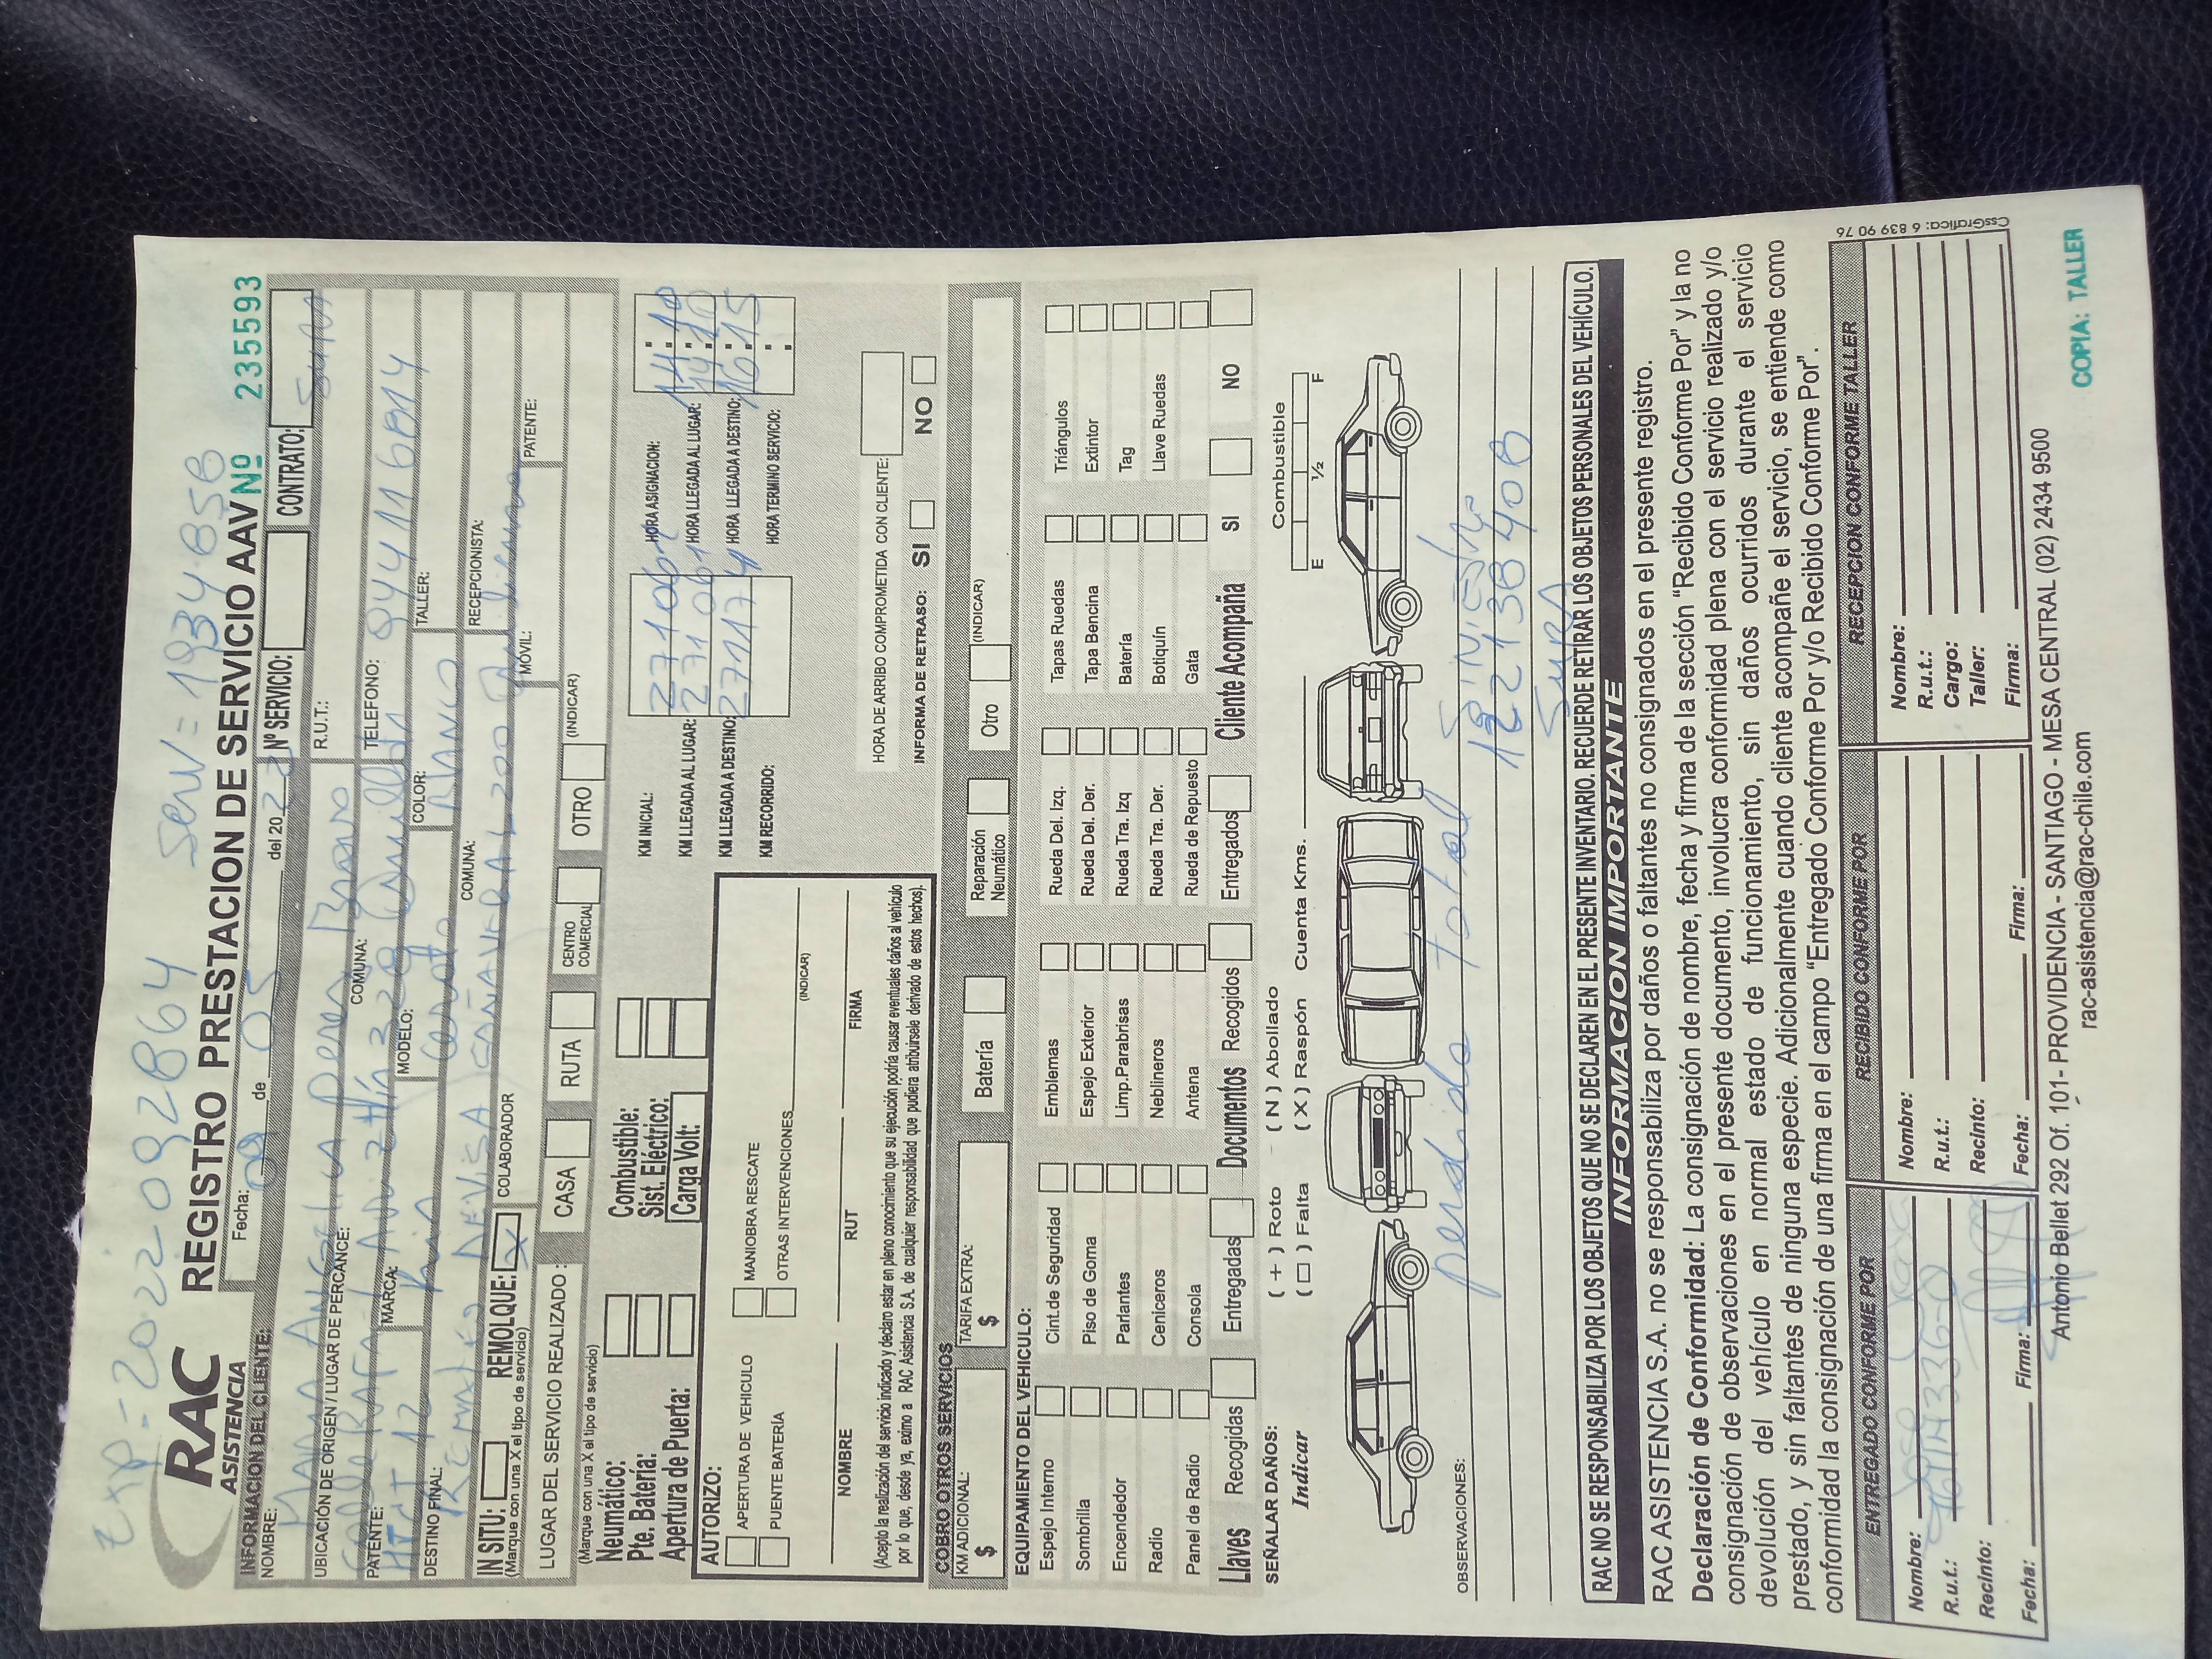 Exp= 2022092864 Serv = 1934858
RAC
ASISTENCIA
REGISTRO PRESTACION DE SERVICIO AAV Nº 235593
INFORMACION DEL CLIENTE:
Fecha: 09 de 05 del 2022 Nº SERVICIO: CONTRATO: Sura
NOMBRE: Maria Angelica Perez Bravo R.U.T.:
UBICACIÓN DE ORIGEN / LUGAR DE PERCANCE: COMUNA: Quillota TELEFONO: 944116814
PATENTE: MARCA: Kia MODELO: Cerato COLOR: Blanco TALLER:
DESTINO FINAL: Remates COMUNA: RECEPCIONISTA:
IN SITU: REMOLQUE: X COLABORADOR MÓVIL: PATENTE:
(Marque con una X el tipo de servicio)
LUGAR DEL SERVICIO REALIZADO: CASA RUTA CENTRO COMERCIAL OTRO (INDICAR)
(Marque con una X el tipo de servicio)
Neumático: Combustible:
Pte. Batería: Sist. Eléctrico:
Apertura de Puerta: Carga Volt:
KM INICIAL: 271061 HORA ASIGNACION: 14:10
KM LLEGADA AL LUGAR: 271061 HORA LLEGADA AL LUGAR: 14:20
KM LLEGADA A DESTINO: 271174 HORA LLEGADA A DESTINO: 16:15
KM RECORRIDO: HORA TERMINO SERVICIO:
AUTORIZO:
APERTURA DE VEHICULO MANIOBRA RESCATE
PUENTE BATERÍA OTRAS INTERVENCIONES (INDICAR)
NOMBRE RUT FIRMA
(Acepto la realización del servicio indicado y declaro estar en pleno conocimiento que su ejecución podría causar eventuales daños al vehículo
por lo que, desde ya, eximo a RAC Asistencia S.A. de cualquier responsabilidad que pudiera atribuírsele derivado de estos hechos).
HORA DE ARRIBO COMPROMETIDA CON CLIENTE:
INFORMA DE RETRASO: SI NO
COBRO OTROS SERVICIOS
KM ADICIONAL: $ TARIFA EXTRA: $ Batería Reparación Neumático Otro (INDICAR)
EQUIPAMIENTO DEL VEHICULO:
Espejo Interno Cint.de Seguridad Emblemas Rueda Del. Izq. Tapas Ruedas Triángulos
Sombrilla Piso de Goma Espejo Exterior Rueda Del. Der. Tapa Bencina Extintor
Encendedor Parlantes Limp.Parabrisas Rueda Tra. Izq Batería Tag
Radio Ceniceros Neblineros Rueda Tra. Der. Botiquín Llave Ruedas
Panel de Radio Consola Antena Rueda de Repuesto Gata
Llaves Recogidas Entregadas Documentos Recogidos Entregados Cliente Acompaña SI NO
SEÑALAR DAÑOS: ( + ) Roto ( N ) Abollado
Indicar ( □ ) Falta ( X ) Raspón Cuenta Kms. Combustible
E 1/2 F
OBSERVACIONES: perdida Total Siniestro
Sura
RAC NO SE RESPONSABILIZA POR LOS OBJETOS QUE NO SE DECLAREN EN EL PRESENTE INVENTARIO. RECUERDE RETIRAR LOS OBJETOS PERSONALES DEL VEHÍCULO.
INFORMACION IMPORTANTE
RAC ASISTENCIA S.A. no se responsabiliza por daños o faltantes no consignados en el presente registro.
Declaración de Conformidad: La consignación de nombre, fecha y firma de la sección "Recibido Conforme Por" y la no
consignación de observaciones en el presente documento, involucra conformidad plena con el servicio realizado y/o
devolución del vehículo en normal estado de funcionamiento, sin daños ocurridos durante el servicio
prestado, y sin faltantes de ninguna especie. Adicionalmente cuando cliente acompañe el servicio, se entiende como
conformidad la consignación de una firma en el campo "Entregado Conforme Por y/o Recibido Conforme Por".
ENTREGADO CONFORME POR RECIBIDO CONFORME POR RECEPCION CONFORME TALLER
Nombre: Nombre: Nombre:
R.u.t.: R.u.t.: R.u.t.:
Recinto: Recinto: Cargo:
Taller:
Fecha: Firma: Fecha: Firma: Firma:
Antonio Bellet 292 Of. 101- PROVIDENCIA - SANTIAGO - MESA CENTRAL (02) 2434 9500
rac-asistencia@rac-chile.com
COPIA: TALLER
CssGrafica: 6 839 90 76